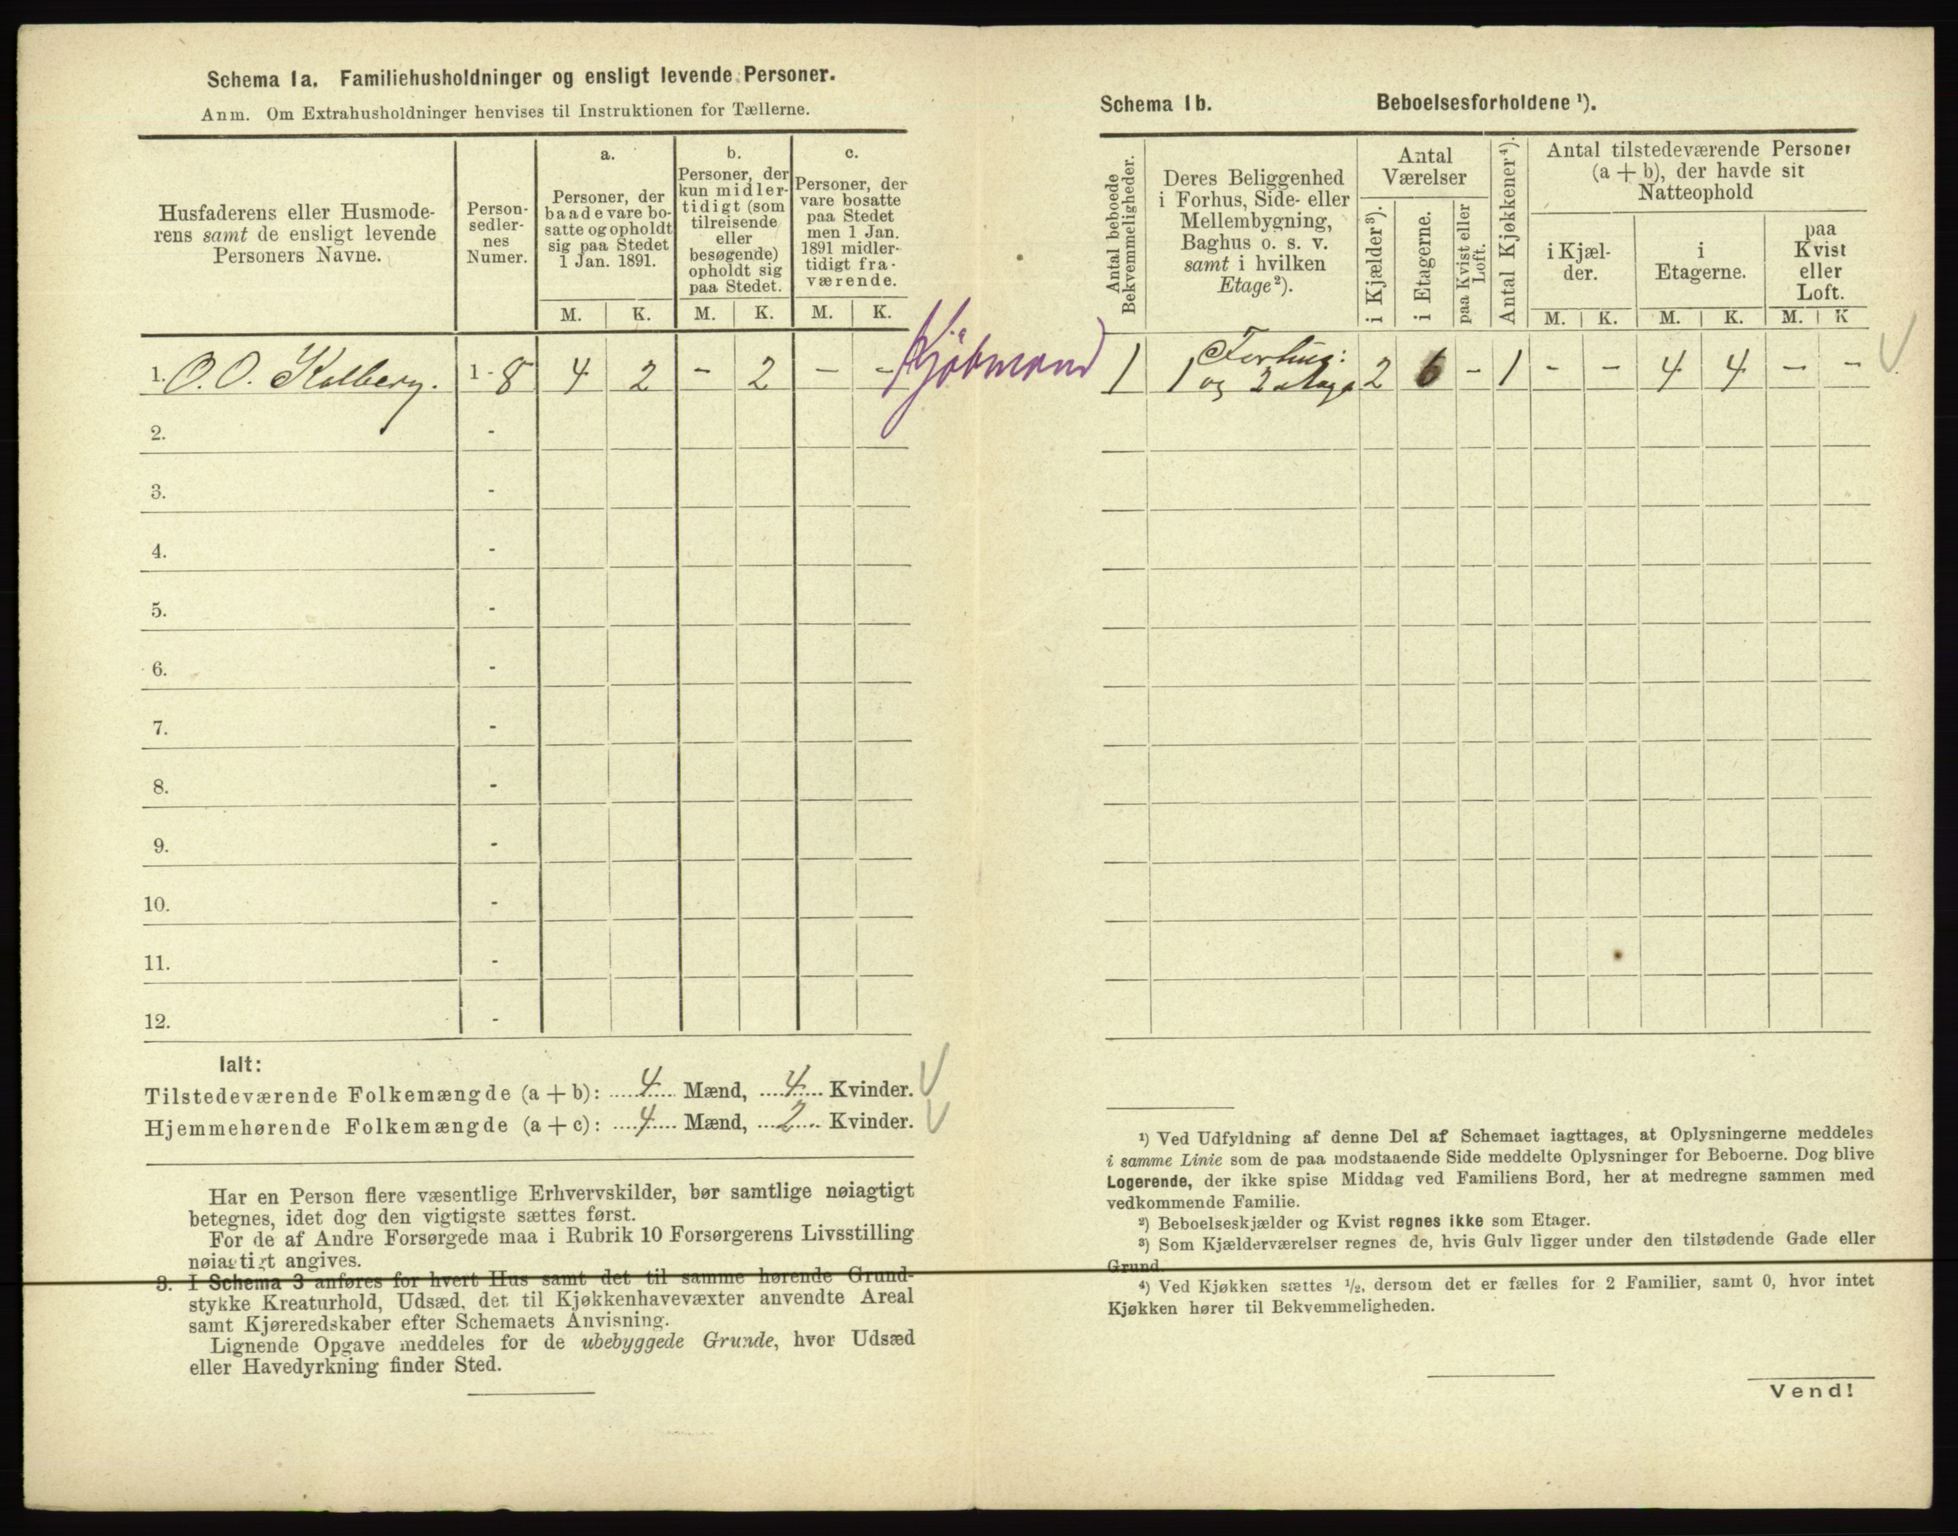 Schema 1a. Familiehusholdninger og ensligt levende Personer.
Anm. Om Extrahusholdninger henvises til Instruktionen for Tællerne.
Husfaderens eller Husmode-
rens samt de ensligt levende
Personers Navne.
Person-
sedler-
nes
Numer.
a.
Personer, der
baade vare bo-
satte og opholdt
sig paa Stedet
1 Jan. 1891.
b.
Personer, der
kun midler-
tidigt (som
tilreisende
eller
besøgende)
opholdt sig
paa Stedet.
c.
Personer, der
vare bosatte
paa Stedet
men 1 Jan.
1891 midler-
tidigt fra-
værende.
M. K. M. K. M. K.
1. O. O. Kolberg. 1 - 8 4 2 - 2 - - Kjøbmand
2. -
3. -
4. -
5. -
6. -
7. -
8. -
9. -
10. -
11. -
12. -
Ialt:
Tilstedeværende Folkemængde (a + b): 4 Mænd, 4 Kvinder.
Hjemmehørende Folkemængde (a + c): 4 Mænd, 2 Kvinder.
Har en Person flere væsentlige Erhvervskilder, bør samtlige nøiagtigt
betegnes, idet dog den vigtigste sættes først.
For de af Andre Forsørgede maa i Rubrik 10 Forsørgerens Livsstilling
nøiagtigt angives.
3. I Schema 3 anføres for hvert Hus samt det til samme hørende Grund-
stykke Kreaturhold, Udsæd, det til Kjøkkenhavevæxter anvendte Areal
samt Kjøreredskaber efter Schemaets Anvisning.
Lignende Opgave meddeles for de ubebyggede Grunde, hvor Udsæd
eller Havedyrkning finder Sted.
Schema 1b. Beboelsesforholdene ¹).
Antal beboede
Bekvemmeligheder.
Deres Beliggenhed
i Forhus, Side- eller
Mellembygning,
Baghus o. s. v.
samt i hvilken
Etage²).
Antal
Værelser
i Kjælder³).
i Etagerne.
paa Kvist eller
Loft.
Antal Kjøkkener⁴).
Antal tilstedeværende Personer
(a + b), der havde sit
Natteophold
i Kjæl-
der.
i
Etagerne.
paa
Kvist
eller
Loft.
M. K. M. K. M. K
1 Forhus:
1 og 2 Etage 2 6 - 1 - - 4 4 - -
¹) Ved Udfyldning af denne Del af Schemaet iagttages, at Oplysningerne meddeles
i samme Linie som de paa modstaaende Side meddelte Oplysninger for Beboerne. Dog blive
Logerende, der ikke spise Middag ved Familiens Bord, her at medregne sammen med
vedkommende Familie.
²) Beboelseskjælder og Kvist regnes ikke som Etager.
³) Som Kjælderværelser regnes de, hvis Gulv ligger under den tilstødende Gade eller
Grund.
⁴) Ved Kjøkken sættes ½, dersom det er fælles for 2 Familier, samt 0, hvor intet
Kjøkken hører til Bekvemmeligheden.
Vend!